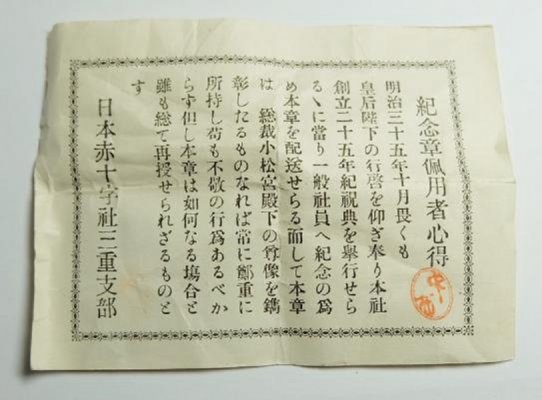 紀念章佩用者心得
明治三十五年十月畏くも
皇后陛下の行啓を仰ぎ奉り本社
創立二十五年紀祝典を舉行せら
るゝに當り一般社員へ紀念の爲
め本章を配送せらる而して本章
は 總裁小松宮殿下の尊像を鐫
彰したるものなれば常に鄭重に
所持し苟も不敬の行爲あるべか
らず但し本章は如何なる塲合と
雖も總て再授せられざるものと
す
日本赤十字社三重支部